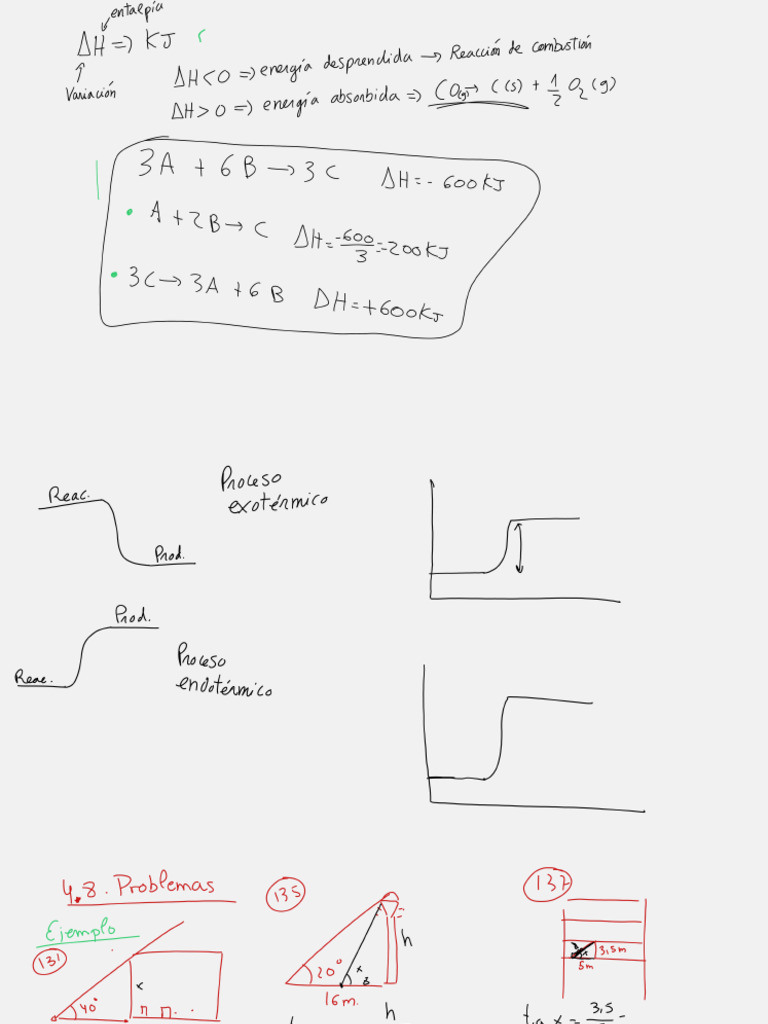 entalpía
ΔH => KJ
Variación
ΔH<0 => energía desprendida → Reacción de combustión
ΔH>0 => energía absorbida => CO(g) → C(s) + 1/2 O2(g)
3A + 6B → 3C ΔH=-600KJ
• A + 2B → C ΔH=-600/3=-200KJ
• 3C → 3A + 6B ΔH=+600KJ
Reac.
Prod.
Proceso
exotérmico
Prod.
Reac.
Proceso
endotérmico
4.8. Problemas
Ejemplo
131
40°
x
135
20°
x
h
16m.
h
137
3,5m
5m
tg x = 3,5